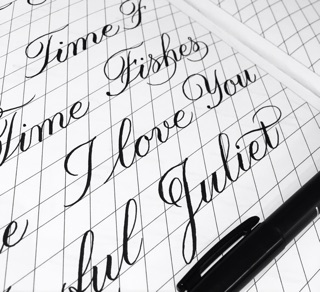 Time F
Time Fishes
I love You
ful Juliet